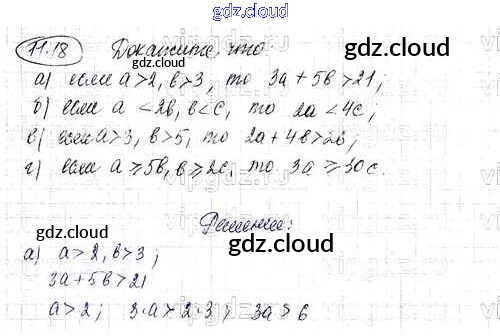 gdz.cloud
11.18 Докажите, что:
а) если a > 2, b > 3, то 3a + 5b > 21;
б) если a < 2b, b < c, то 2a < 4c;
в) если a > 3, b > 5, то 2a + 4b > 26;
г) если a ⩾ 5b, b ⩾ 2c, то 3a ⩾ 30c.
Решение:
gdz.cloud
gdz.cloud
а) a > 2, b > 3;
3a + 5b > 21
a > 2; 3·a > 2·3; 3a > 6